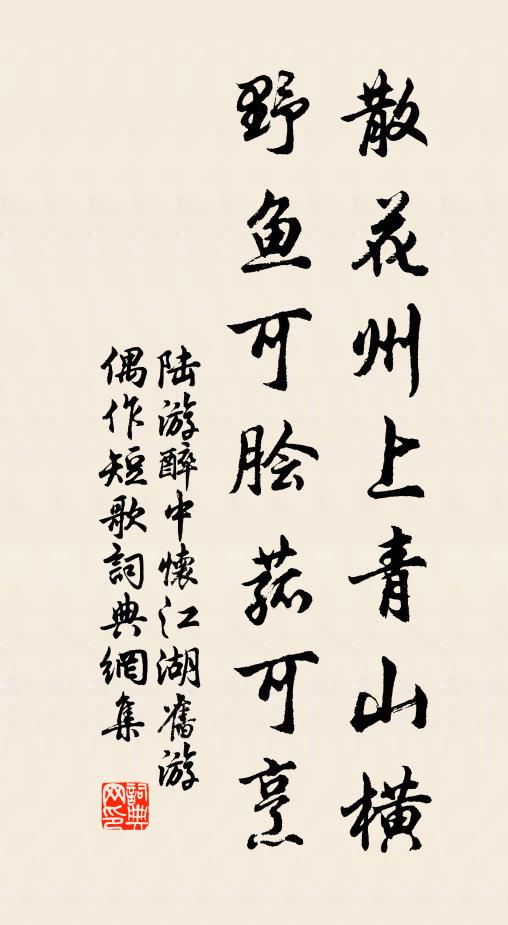 散花州上青山横
野鱼可脍菰可烹
陆游醉中懷江湖舊游
偶作短歌詞典網集
詞典网印